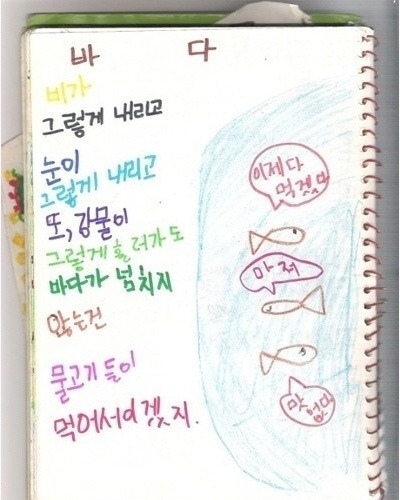 바 다
비가
그렇게 내리고
눈이
그렇게 내리고
또, 강물이
그렇게 흘러가도
바다가 넘치지
않는건
물고기들이
먹어서이겠지.
이제다
먹겠다
마져
맛없다